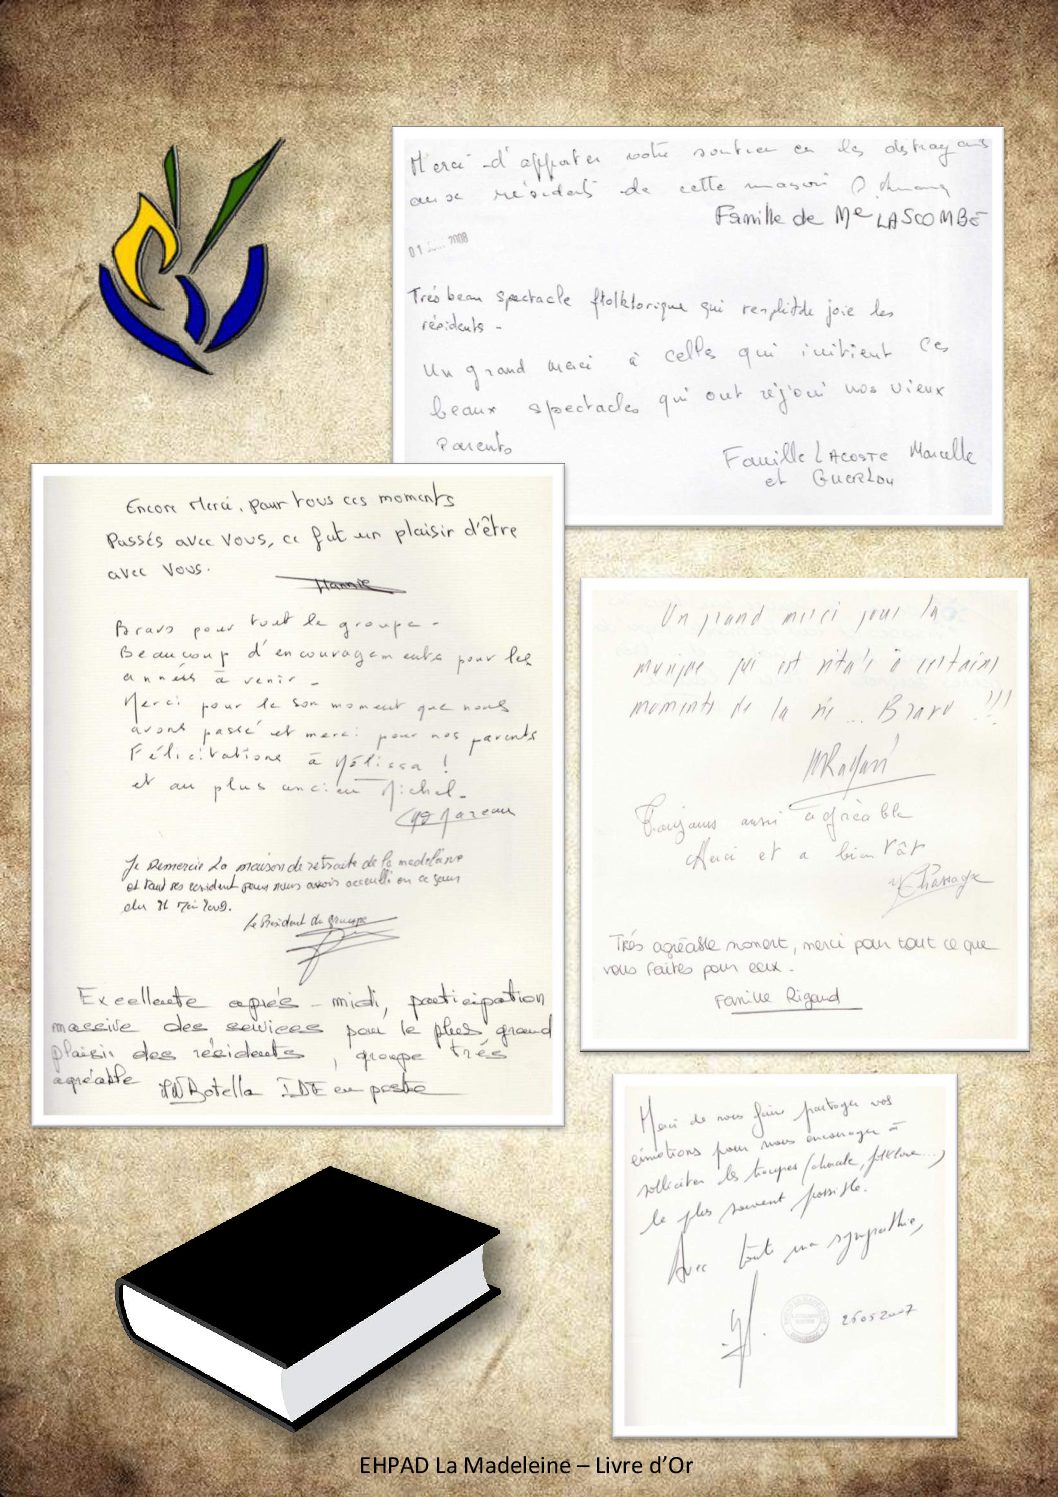 Merci d'apporter votre soutien en les distrayant
aux résidents de cette maison
Famille de Me LASCOMBE
01 2008
Très beau spectacle ftolklorique qui remplit de joie les
résidents -
Un grand merci à celles qui initient ces
beaux spectacles qui ont réjoui nos vieux
parents
Famille LACOSTE Marcelle
et
Encore Merci, pour tous ces moments
Passés avec vous, ce fut un plaisir d'être
avec vous.
Bravo pour tout le groupe -
Beaucoup d'encouragements pour les
années à venir -
Merci pour le bon moment que nous
avons passé et merci pour nos parents
Félicitations à Mélissa !
et au plus ancien Michel -
Je Remercie La maison de retraite de la madelaine
et tout ses resident pour nous avoir accueilli en ce jour
du Mai 2009.
Le Président du groupe
Excellente après-midi, participation
massive des services pour le plus grand
plaisir des résidents, groupe très
agréable Botella IDE en poste
Un grand merci pour la
musique qui est vitale à certains
moments de la vie ... Bravo !!!
Toujours aussi agréable
Merci et a bientôt
Très agréable moment, merci pour tout ce que
vous faites pour eux -
Famille Rigaud
Merci de nous faire partager vos
émotions pour nous encourager à
solliciter les troupes (chorale, folklore...)
le plus souvent possible.
Avec toute ma sympathie,
26052007
EHPAD La Madeleine – Livre d'Or